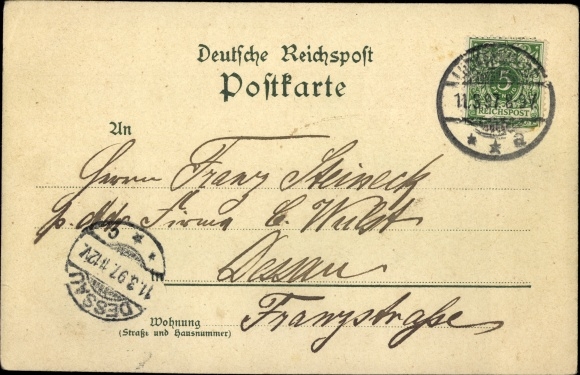 Deutsche Reichspost
Postkarte
5
REICHSPOST
11.3.97.8-9V.
* * a
An
Herrn Franz Steineck
p. Adr. Firma C. Wulst
Dessau
Franzstraße
Wohnung
(Straße und Hausnummer)
DESSAU
11.3.97.11-12V.
* * c